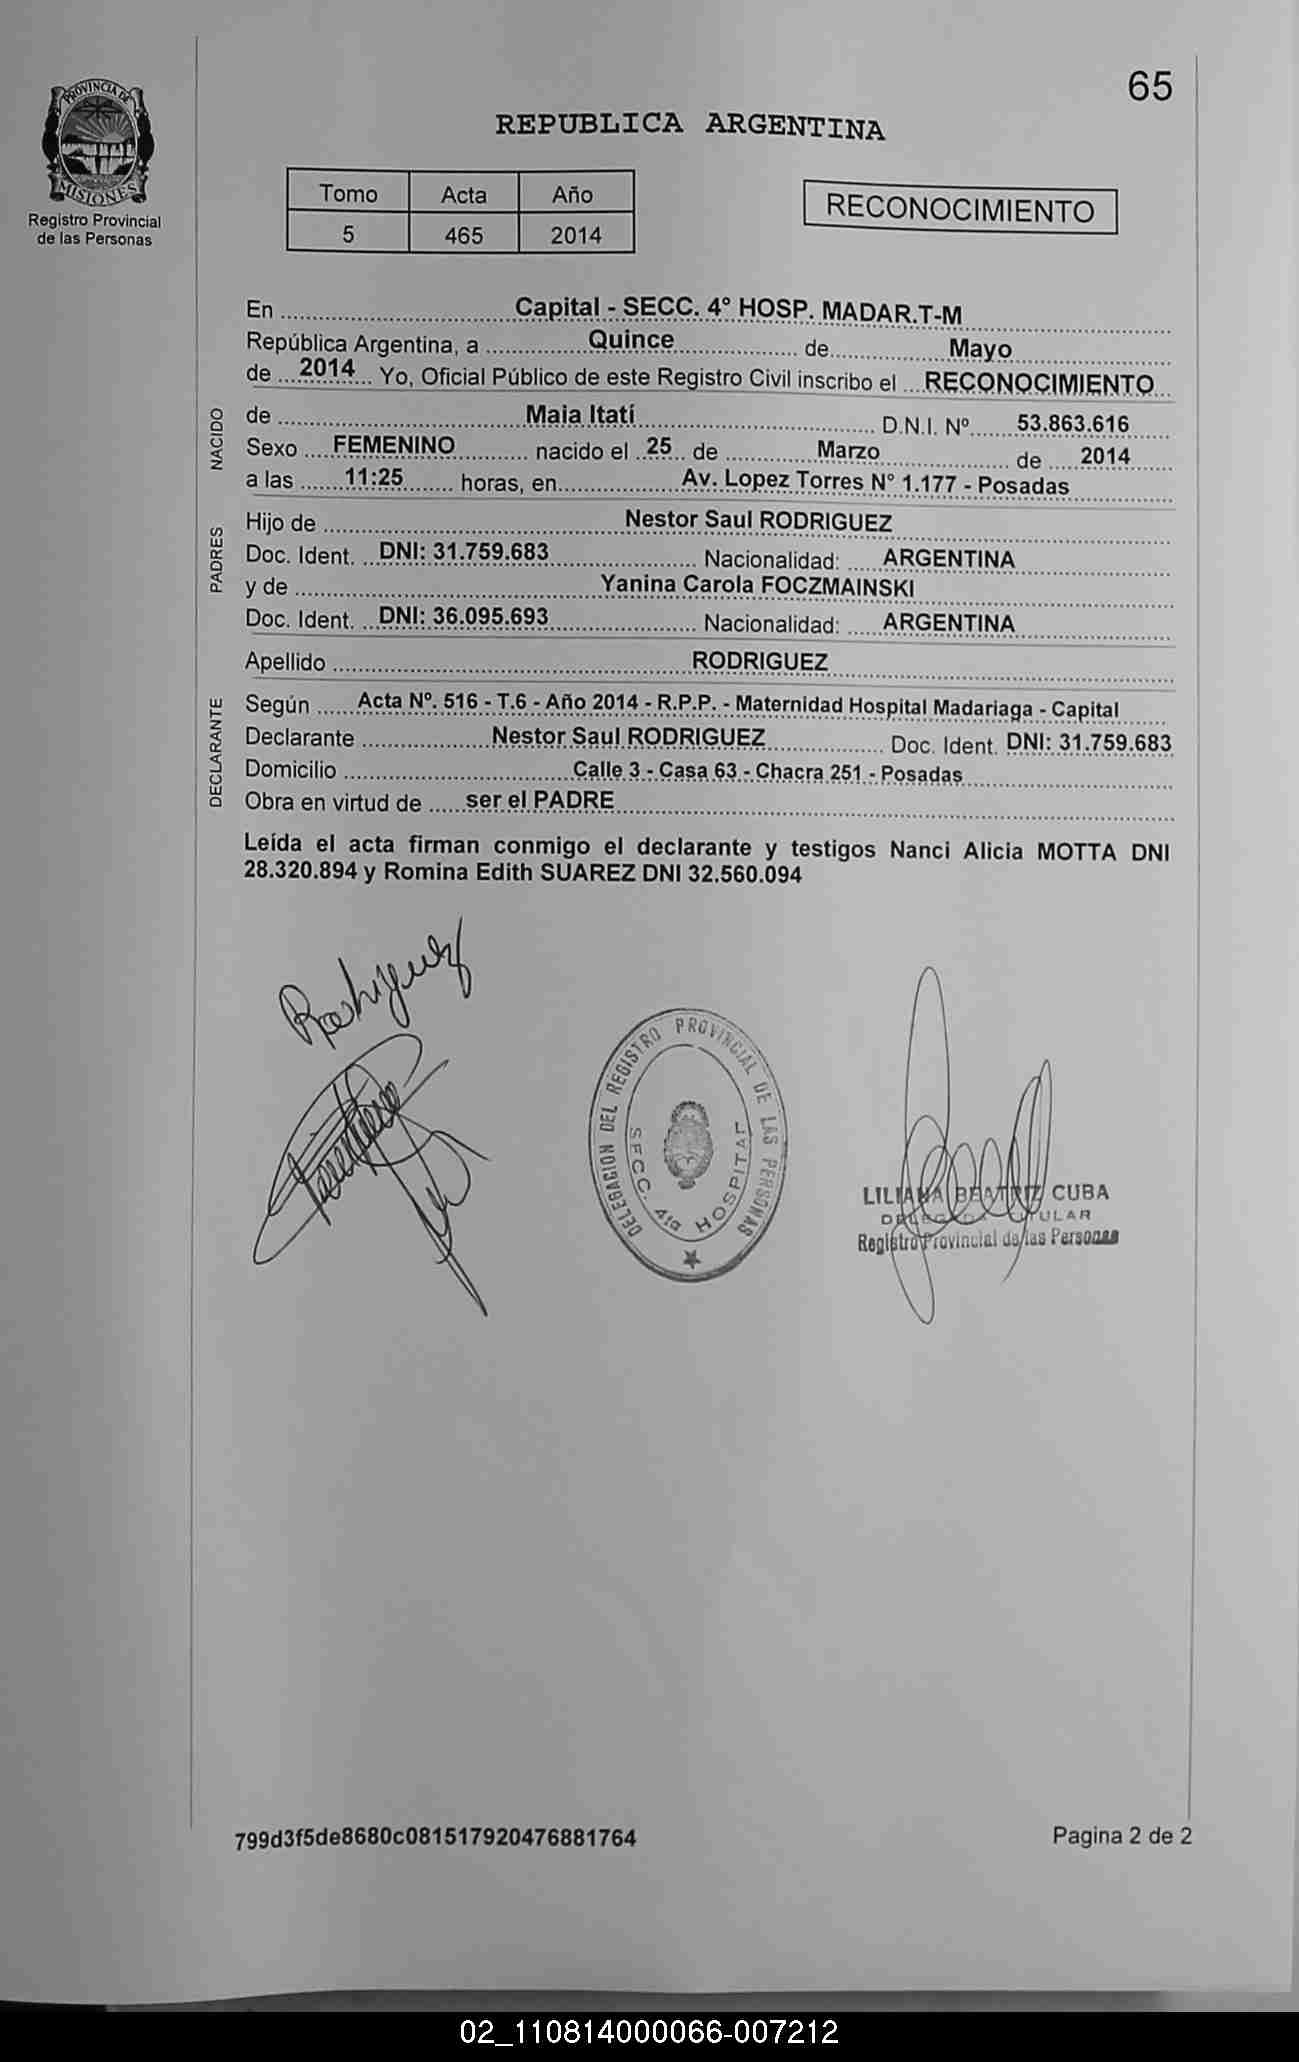 65
PROVINCIA DE
MISIONES
Registro Provincial
de las Personas
REPUBLICA ARGENTINA
Tomo Acta Año
5 465 2014
RECONOCIMIENTO
En ........ Capital - SECC. 4° HOSP. MADAR.T-M
República Argentina, a ........ Quince ........ de ........ Mayo
de ... 2014 ... Yo, Oficial Público de este Registro Civil inscribo el ... RECONOCIMIENTO
NACIDO
de ........ Maia Itatí ........ D.N.I. Nº ...... 53.863.616
Sexo .... FEMENINO ........ nacido el . 25 .. de ........ Marzo ........ de .... 2014
a las ...... 11:25 ...... horas, en ........ Av. Lopez Torres N° 1.177 - Posadas
PADRES
Hijo de ........ Nestor Saul RODRIGUEZ
Doc. Ident. .. DNI: 31.759.683 ........ Nacionalidad: .... ARGENTINA
y de ........ Yanina Carola FOCZMAINSKI
Doc. Ident. .. DNI: 36.095.693 ........ Nacionalidad: .... ARGENTINA
Apellido ........ RODRIGUEZ
DECLARANTE
Según ..... Acta Nº. 516 - T.6 - Año 2014 - R.P.P. - Maternidad Hospital Madariaga - Capital
Declarante ........ Nestor Saul RODRIGUEZ ........ Doc. Ident. DNI: 31.759.683
Domicilio ........ Calle 3 - Casa 63 - Chacra 251 - Posadas
Obra en virtud de ..... ser el PADRE
Leída el acta firman conmigo el declarante y testigos Nanci Alicia MOTTA DNI
28.320.894 y Romina Edith SUAREZ DNI 32.560.094
Rodriguez
DELEGACION DEL REGISTRO PROVINCIAL DE LAS PERSONAS
SECC. 4ta HOSPITAL
LILIANA BEATRIZ CUBA
DELEGADA TITULAR
Registro Provincial de las Personas
799d3f5de8680c081517920476881764
Pagina 2 de 2
02_110814000066-007212